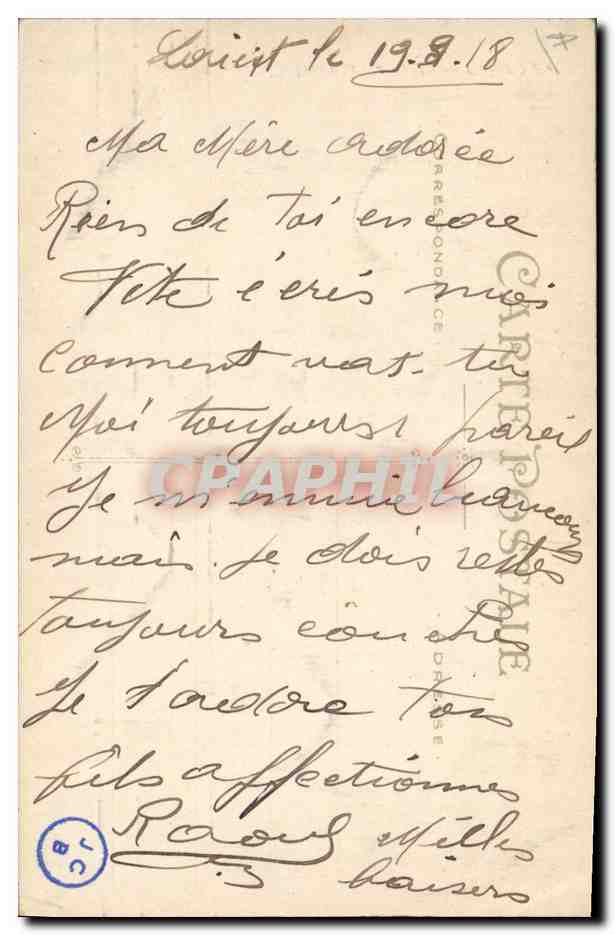 Lorient le 19.8.18
Ma Mère adorée
Rien de toi encore
Vite écris moi
comment vas-tu
Moi toujours pareil
Je m'ennuie beaucoup
mais je dois rester
toujours couché
Je t'adore ton
fils affectionnés
Raoul Milles
baisers
CARTE POSTALE
CORRESPONDANCE
ADRESSE
CPAPHIL